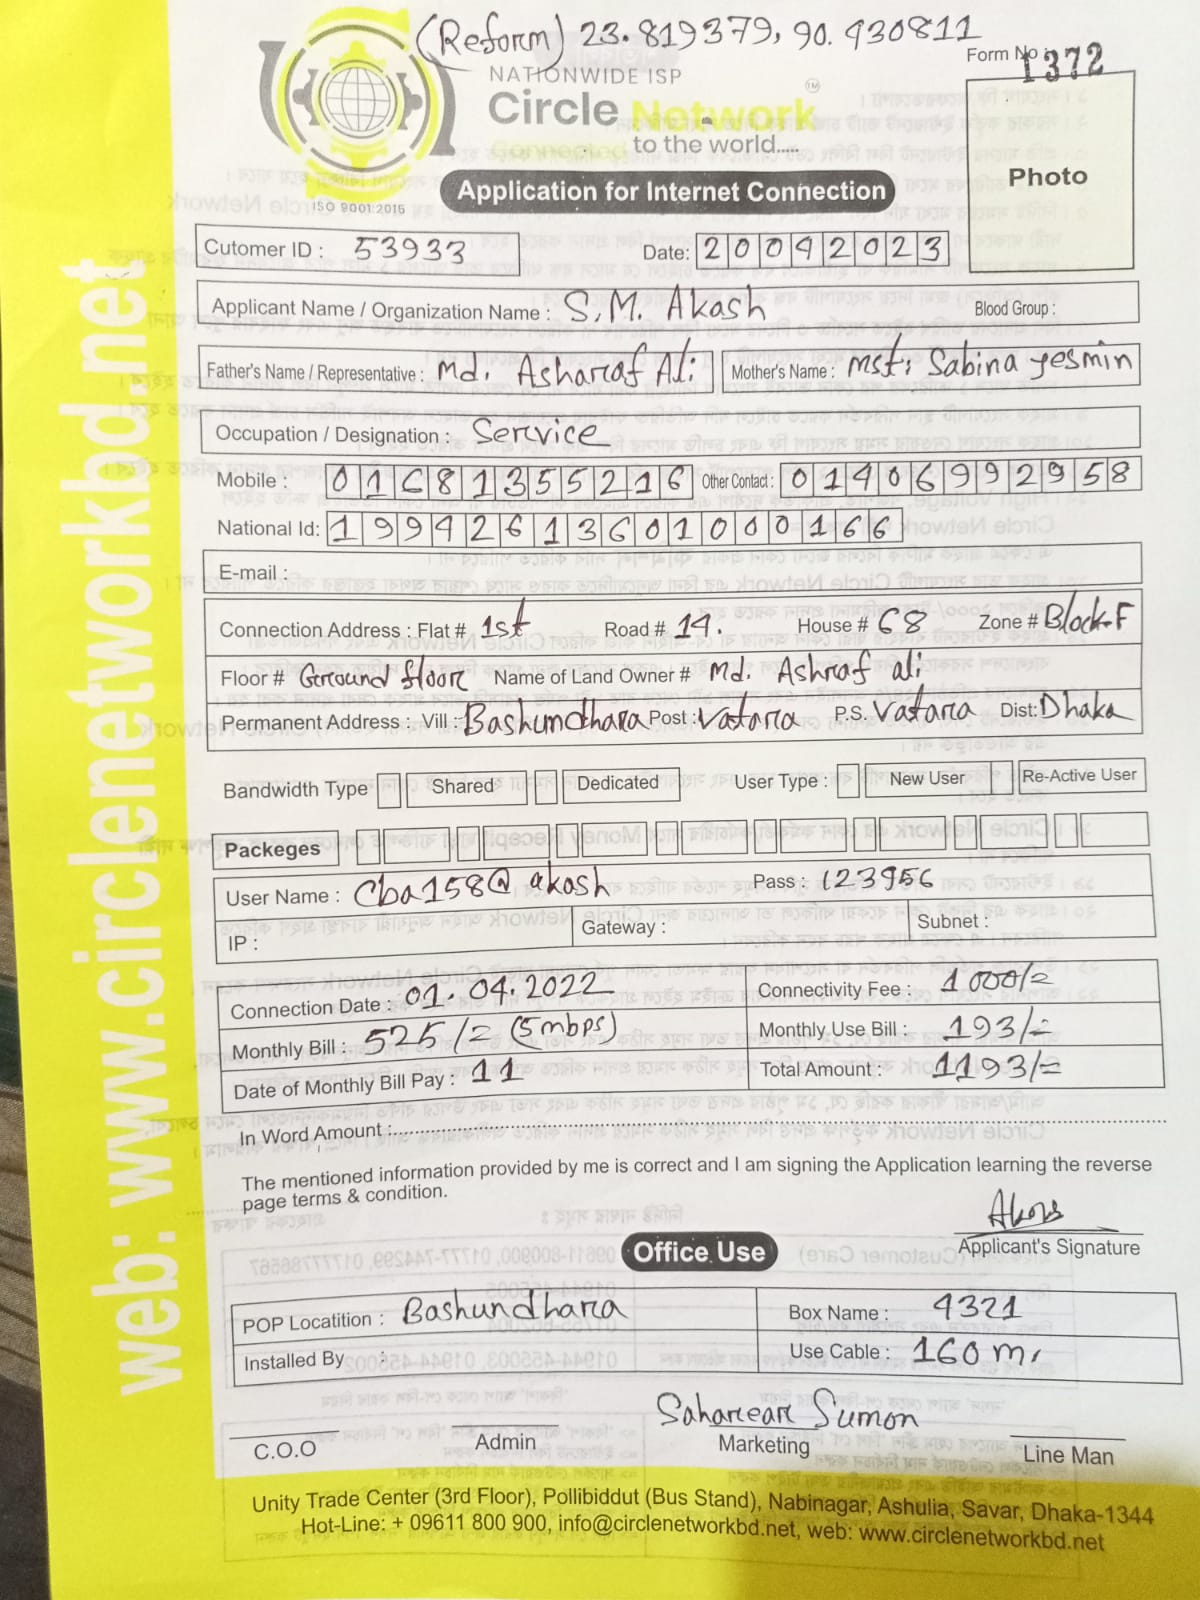 (Reform) 23.819379, 90.430811
Form No : 1372
NATIONWIDE ISP
Circle Network TM
Connected to the world.....
ISO 9001:2015
Application for Internet Connection
Photo
Cutomer ID : 53933 Date: 20042023
Applicant Name / Organization Name : S.M. Akash Blood Group :
Father's Name / Representative : Md. Asharaf Ali Mother's Name : Mst: Sabina yesmin
Occupation / Designation : Service
Mobile : 01681355216 Other Contact : 01406992958
National Id: 1994261360100 0166
E-mail :
Connection Address : Flat # 1st Road # 14. House # 68 Zone # Block-F
Floor # Ground floor Name of Land Owner # Md. Ashraf ali
Permanent Address : Vill : Bashundhara Post : Vatara P.S. Vatara Dist: Dhaka
Bandwidth Type Shared Dedicated User Type : New User Re-Active User
Packeges
User Name : Cba158@akash Pass : 123456
IP : Gateway : Subnet :
Connection Date : 01.04.2022 Connectivity Fee : 1000/=
Monthly Bill : 525/= (5mbps) Monthly Use Bill : 193/=
Date of Monthly Bill Pay : 11 Total Amount : 1193/=
In Word Amount :
The mentioned information provided by me is correct and I am signing the Application learning the reverse
page terms & condition.
Applicant's Signature
Office Use
POP Locatition : Bashundhara Box Name : 4321
Installed By : Use Cable : 160 m.
Saharear Sumon
C.O.O Admin Marketing Line Man
Unity Trade Center (3rd Floor), Pollibiddut (Bus Stand), Nabinagar, Ashulia, Savar, Dhaka-1344
Hot-Line: + 09611 800 900, info@circlenetworkbd.net, web: www.circlenetworkbd.net
web: www.circlenetworkbd.net